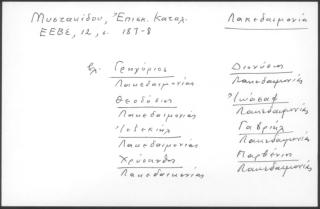 Μυστακίδου, Ἐπισκ. Καταλ.
ΕΕΒΣ, 12, σ. 187-8
Λακεδαιμονία
βλ. Γρηγόριος
Λακεδαιμονίας
Θεοδόσιος
Λακεδαιμονίας
Ἰεζεκιὴλ
Λακεδαιμονίας
Χρύσανθος
Λακεδαιμονίας
Διονύσιος
Λακεδαιμονίας
Ἰωάσαφ
Λακεδαιμονίας
Γαβριὴλ
Λακεδαιμονίας
Παρθένιος
Λακεδαιμονίας